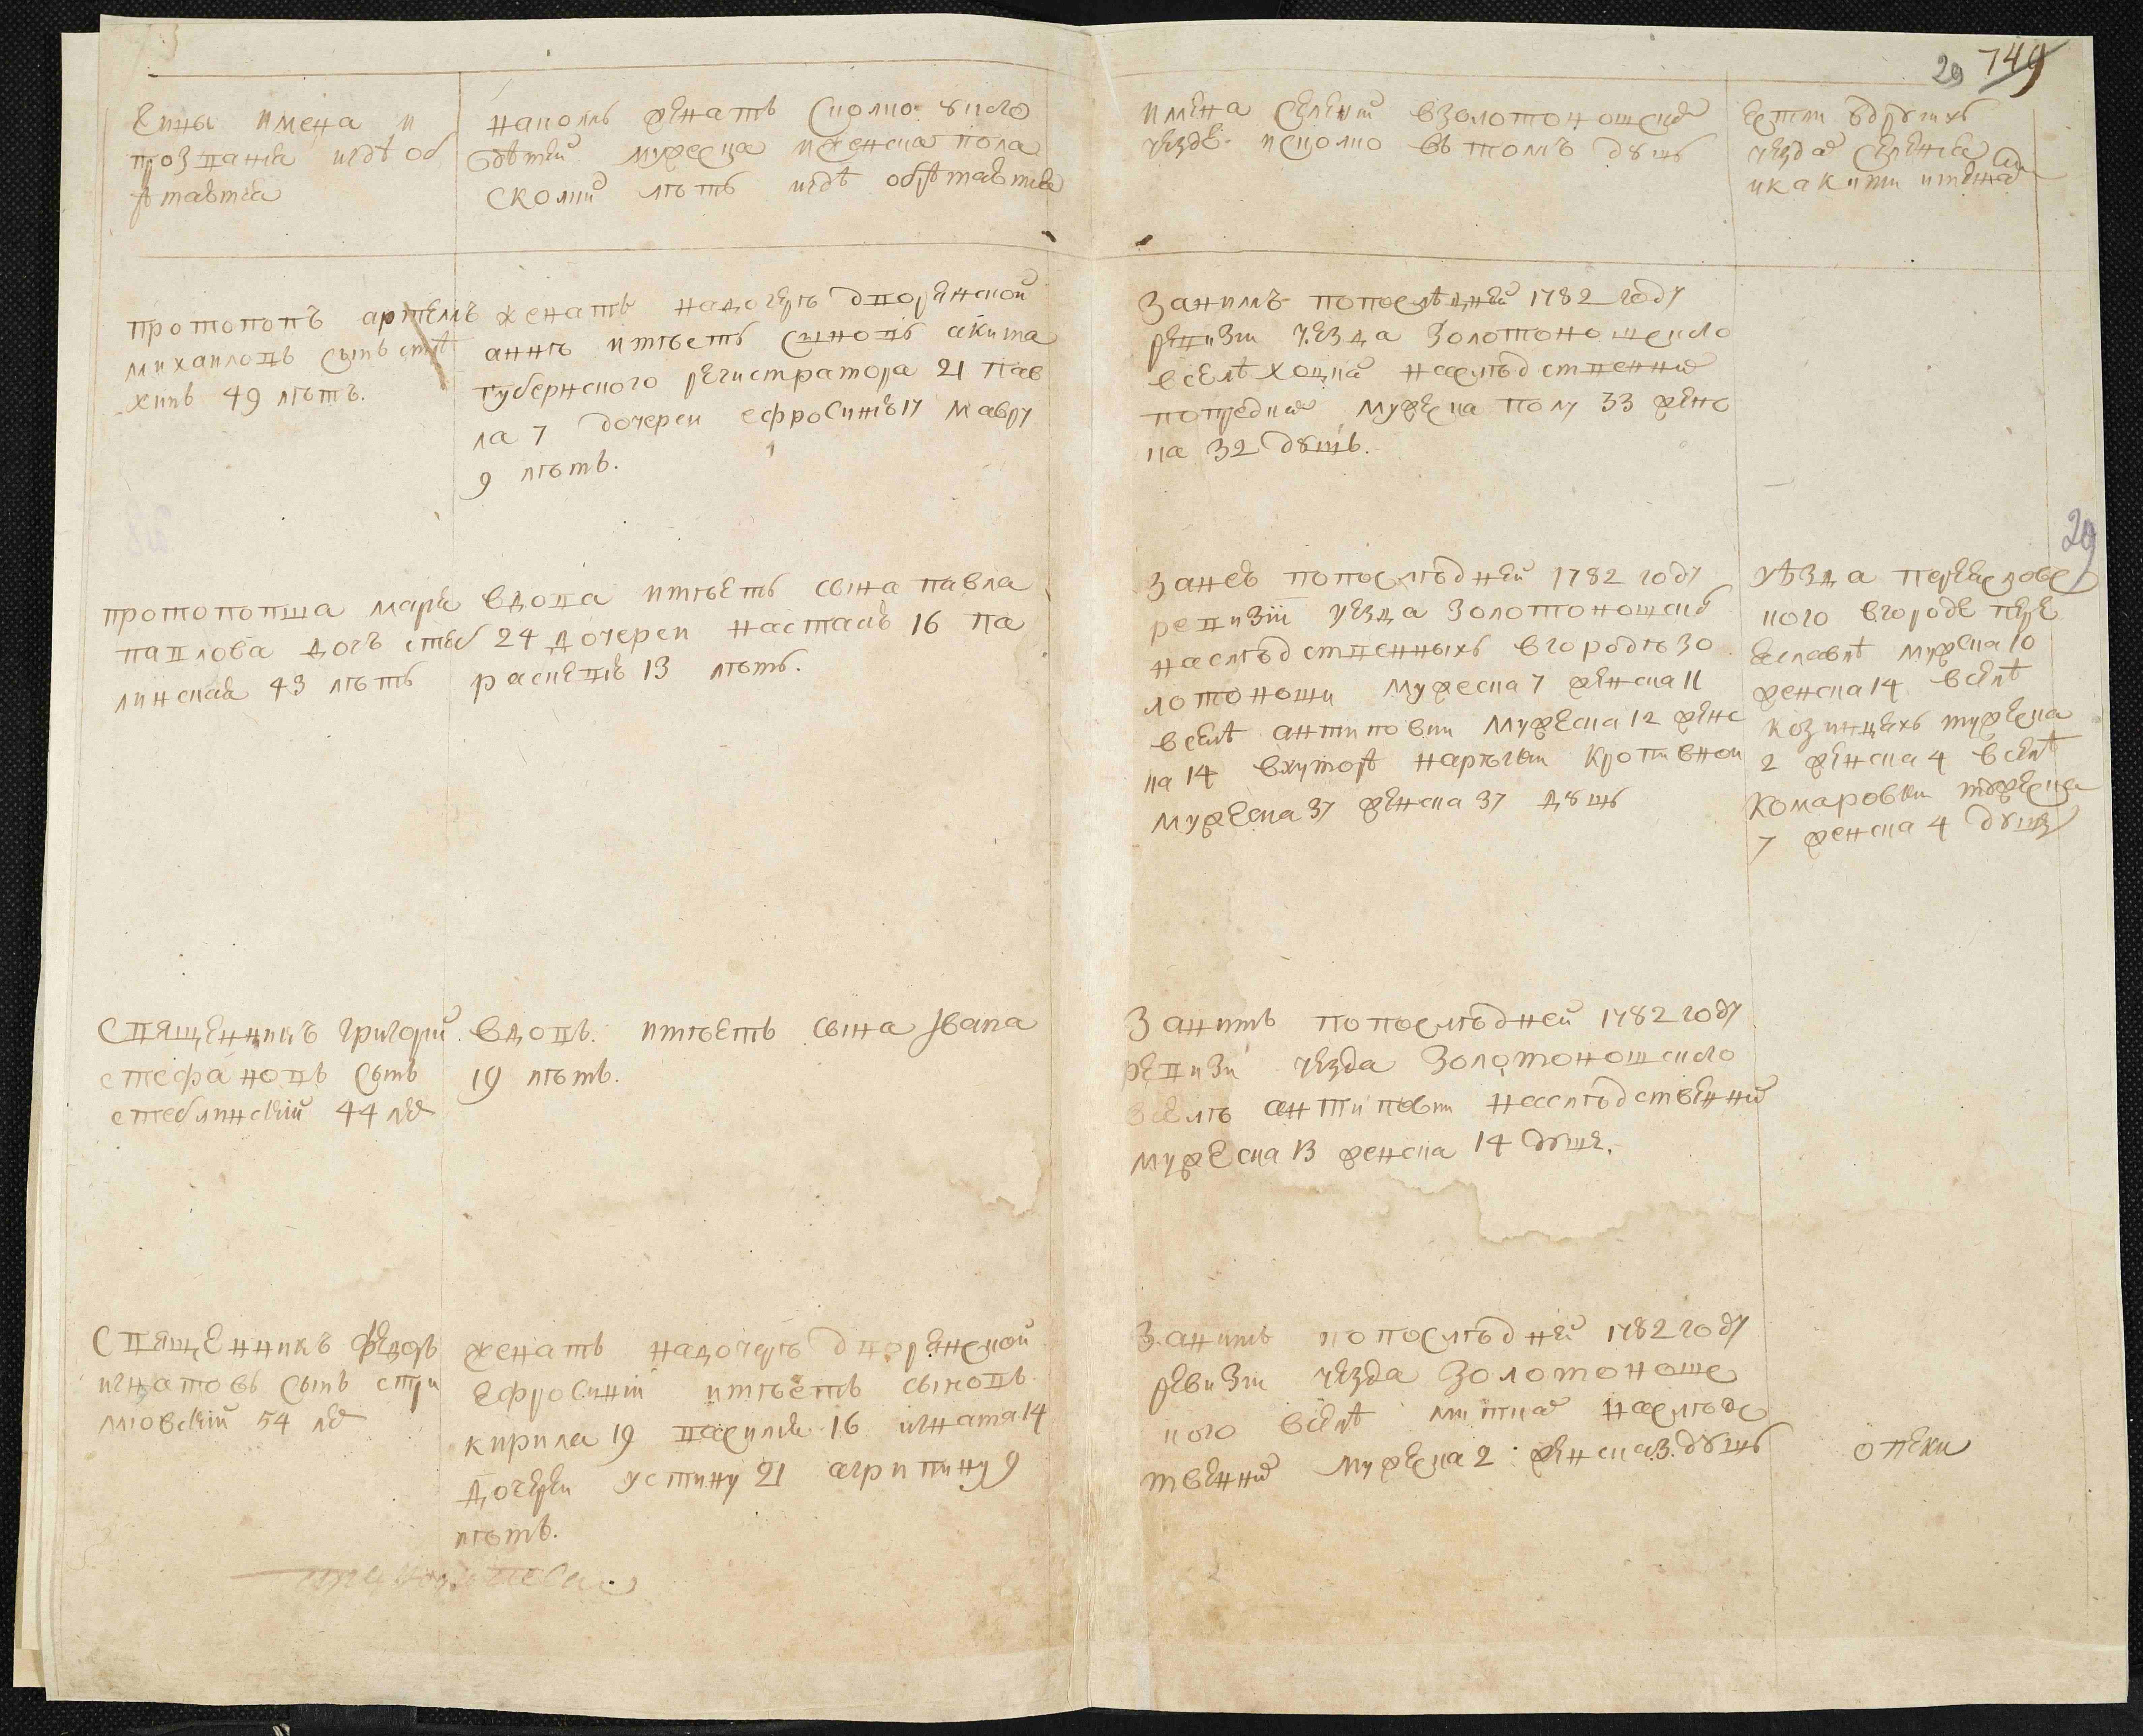 29 749
Чины имена и
прозвания и гдѣ об
ѣтается
На комъ женатъ сколко число
дѣтей мужеска и женска пола
сколки лѣтъ и гдѣ обѣтается
имена селений в золотоношском
уезде и сколко въ томъ душъ
естли в другихъ
уездах селения
и какими
протопопъ артемъ
михаиловъ сынъ
49 лѣтъ.
женатъ на дочерѣ дворянской
аннѣ имѣетъ сыновъ акима
губернского регистратора 21 пав
ла 7 дочереи ефросинѣ 17 мавру
9 лѣтъ.
За нимъ по последней 1782 году
ревизии уезда Золотоношского
в селѣ хоцках наследственних
мужеска полу 33 женс
ка 32 душъ.
29
протопопша мария
павлова дочъ стеб
линская 43 лѣтъ
вдова имѣетъ сына павла
24 дочереи настасю 16 па
раскевю 13 лѣтъ.
За нею по последней 1782 году
ревизии уезда Золотоношско
наследственныхъ в городѣ зо
лотоноши мужеска 7 женска 11
в селѣ антиповки мужеска 12 женс
ка 14 в хуторѣ на речки кропивнои
мужеска 37 женска 37 душъ
уѣзда переяславс
кого в городе пере
яславлѣ мужска 10
женска 14 в селѣ
козинцахъ мужеска
2 женска 4 в селѣ
комаровки мужеска
7 женска 4 душъ
Священникъ григорий
стефановъ сынъ
стеблинский 44 лѣ
вдовъ. имѣетъ сына Ивана
19 лѣтъ.
За нимъ по последней 1782 году
ревизи уезда Золотоношского
в селѣ антиповки наследственний
мужеска 13 женска 14 душъ.
Священникъ федоръ
игнатовъ сынъ
54 лѣ
женатъ на дочерѣ дворянской
Ефросинии имѣетъ сыновъ
кирила 19 василия 16 игната 14
дочереи устину 21 агрипину 9
лѣтъ.
За нимъ по последней 1782 году
ревизии уезда Золотоношс
кого в селѣ наследс
твенних мужеска 2 женска 3. душъ
опеки